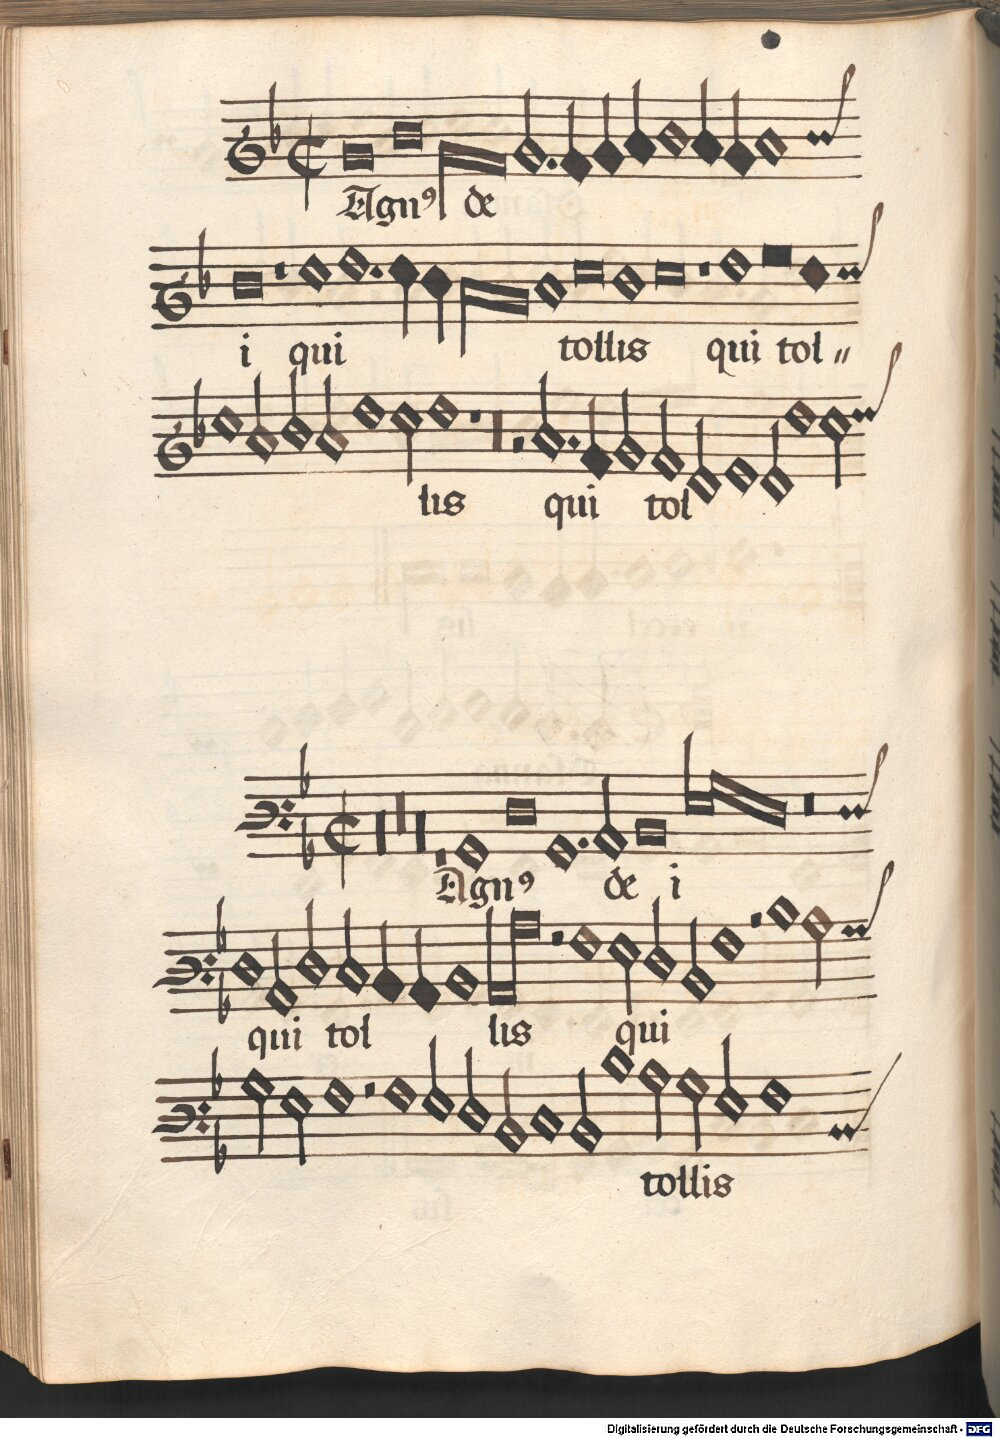 Agnꝰ de
i qui tollis qui tol〃
lis qui tol
Agnꝰ de i
qui tol lis qui
tollis
Digitalisierung gefördert durch die Deutsche Forschungsgemeinschaft - DFG